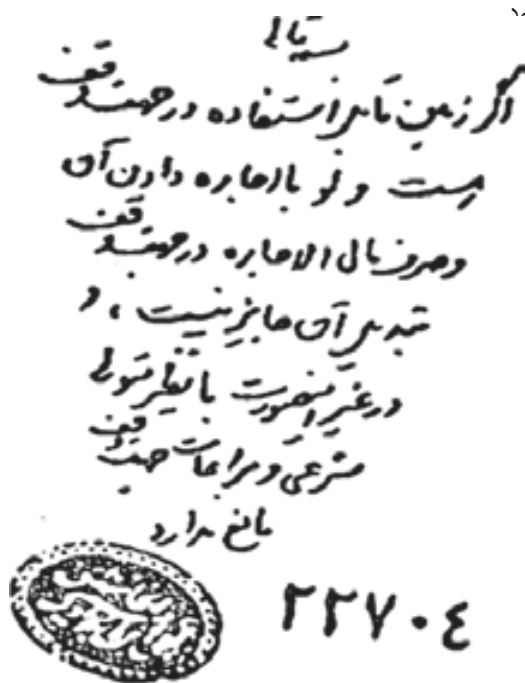 بسمه تعالی
اگر زمین قابل استفاده در جهت وقف
است ولو با اجاره دادن آن
و صرف مال الاجاره در جهت وقف
تبدیل آن جایز نیست ، و
در غیر اینصورت با نظر متولی
شرعی و مراعات جهت وقف
مانع ندارد
۲۲۷۰٤